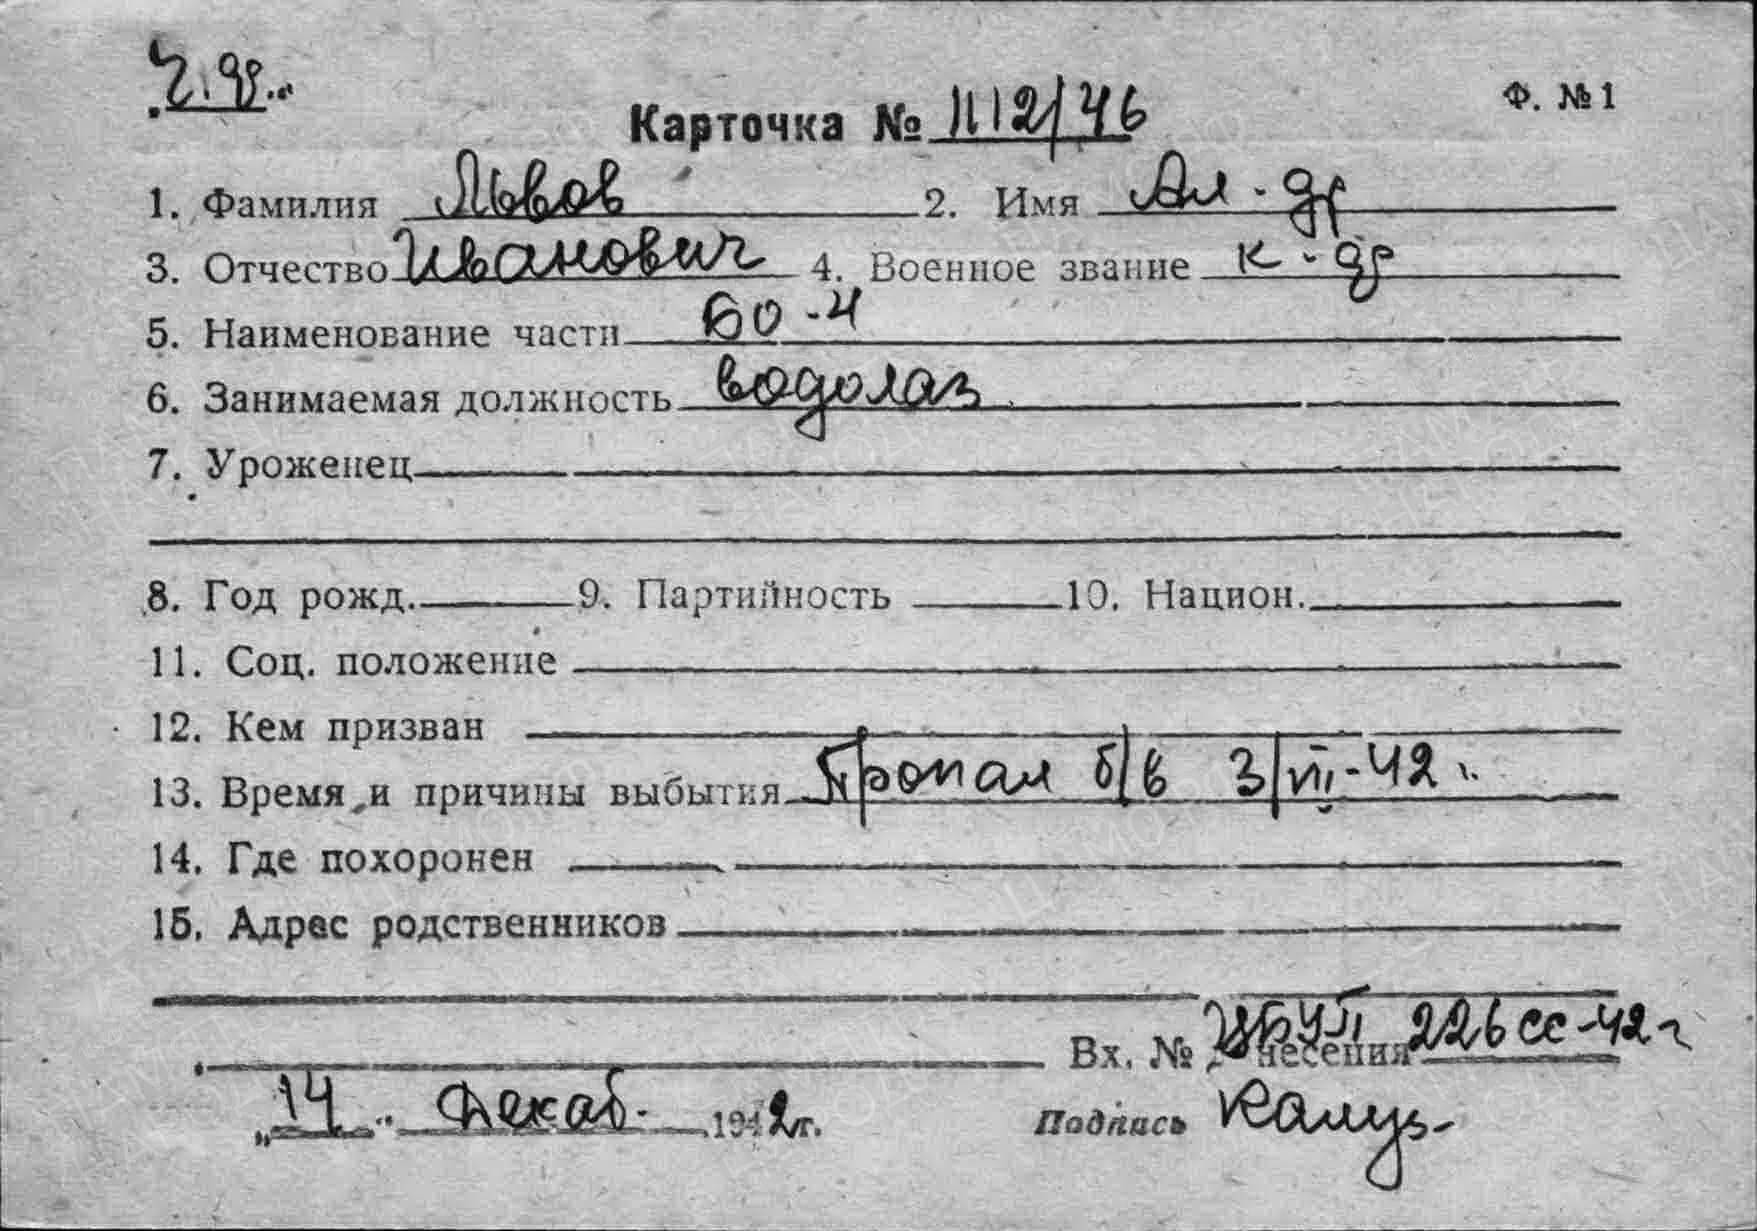 Ч. ф.
Ф. №1
Карточка № 1112/46
1. Фамилия Львов 2. Имя Ал-др
3. Отчество Иванович 4. Военное звание к-др
5. Наименование части БО-4
6. Занимаемая должность водолаз
7. Уроженец
8. Год рожд. 9. Партийность 10. Национ.
11. Соц. положение
12. Кем призван
13. Время и причины выбытия Пропал б/в 3/VII-42 г.
14. Где похоронен
15. Адрес родственников
Вх. № донесения ЦБУП 226сс-42 г
„14" Декаб. 1942 г. Подпись